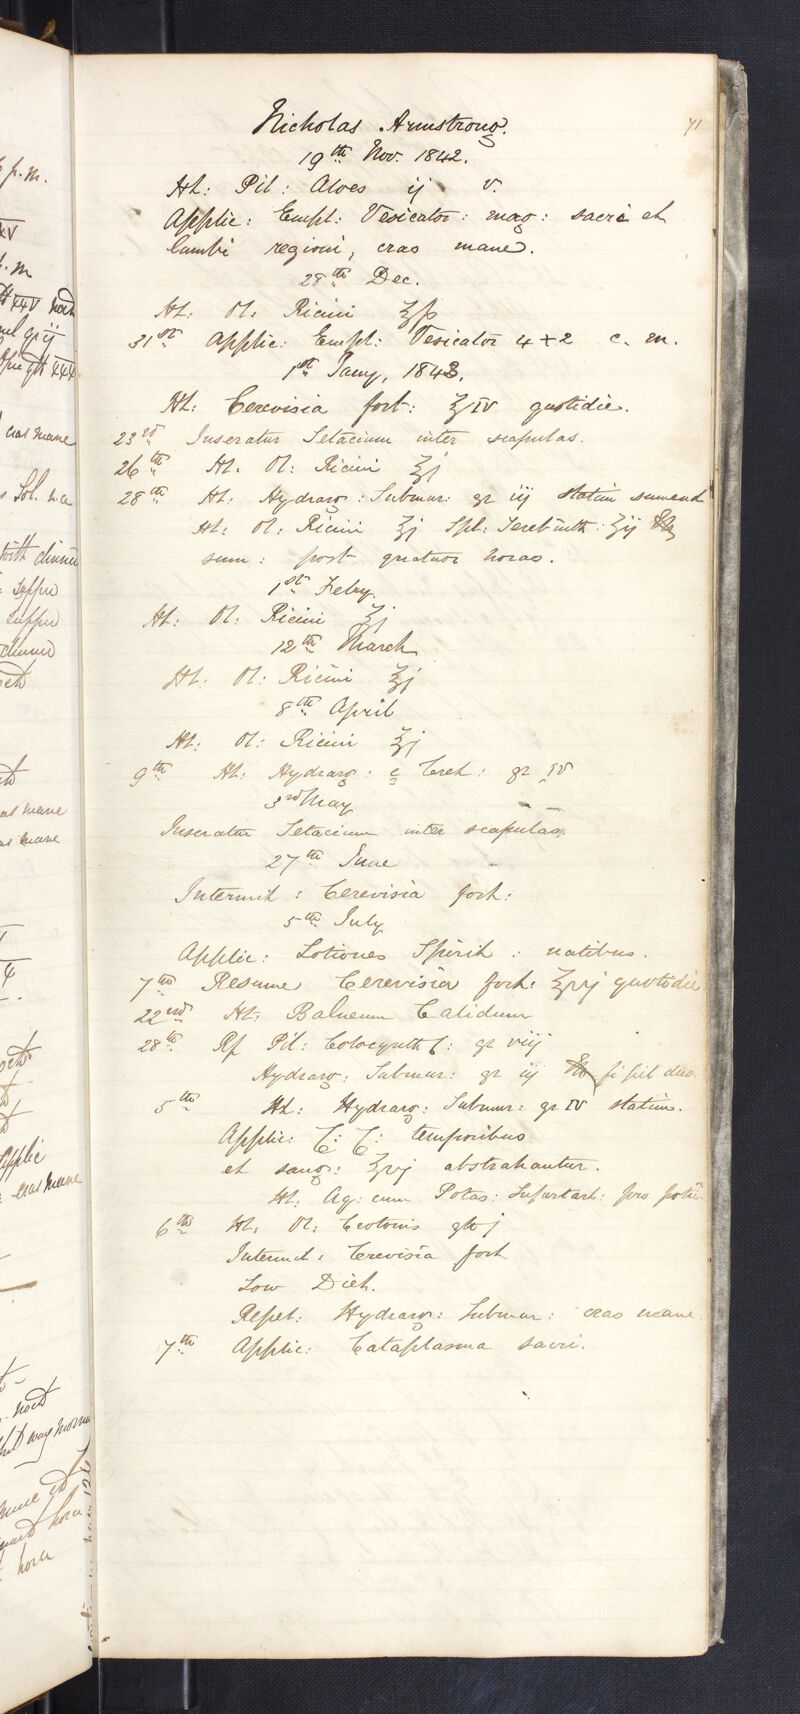 71
Nicholas Armstrong.
19th Nov. 1842.
Ht: Pil: Aloes ij v.
Applic: Empl: Vesicator: mag: sacri et
lumbi regioni, cras mane.
28th Dec.
Ht: Ol: Ricini ℥ſs
31st Applic: Empl: Vesicator 4 + 2 c. m.
1st Jany, 1843.
Ht: Cerevisia fort: ℥IV quotidie.
23rd Inseratur Setacium inter scapulas.
26th Ht. Ol: Ricini ℥j
28th Ht. Hydrarg: Submur: gr iij statim sumend
Ht: Ol: Ricini ℥j Spt: Terebinth: ʒij
sum: post quatuor horas.
1st Feby.
Ht: Ol: Ricini ℥j
12th March
Ht. Ol: Ricini ℥j
8th April
Ht: Ol: Ricini ℥j
9th Ht: Hydrarg: c Cret: gr IV
3rd May
Inseratur Setacium inter scapulas.
27th June
Intermit: Cerevisia fort:
5th July
Applic: Lotiones Spirit: natibus.
7th Resume Cerevisia fort: ℥vj quotidie
22nd Ht: Balneum Calidum
28th Rx Pil: Colocynth C: gr viij
Hydrarg: Submur: gr iij fi pil duo
5th Ht: Hydrarg: Submur: gr IV statim.
Applic: C: C: temporibus
et sang: ℥vj abstrahantur.
Ht. Aq: cum Potas: Supertart: pro potu
6th Ht. Ol: Crotonis gtt j
Intermit: Cerevisia fort
Low Diet.
Repet: Hydrarg: Submur: cras mane.
7th Applic: Cataplasma sacri.
p.m.
cras mane
with dinner
supper
supper
dinner
cras mane
Applic
cras mane
hora
hora